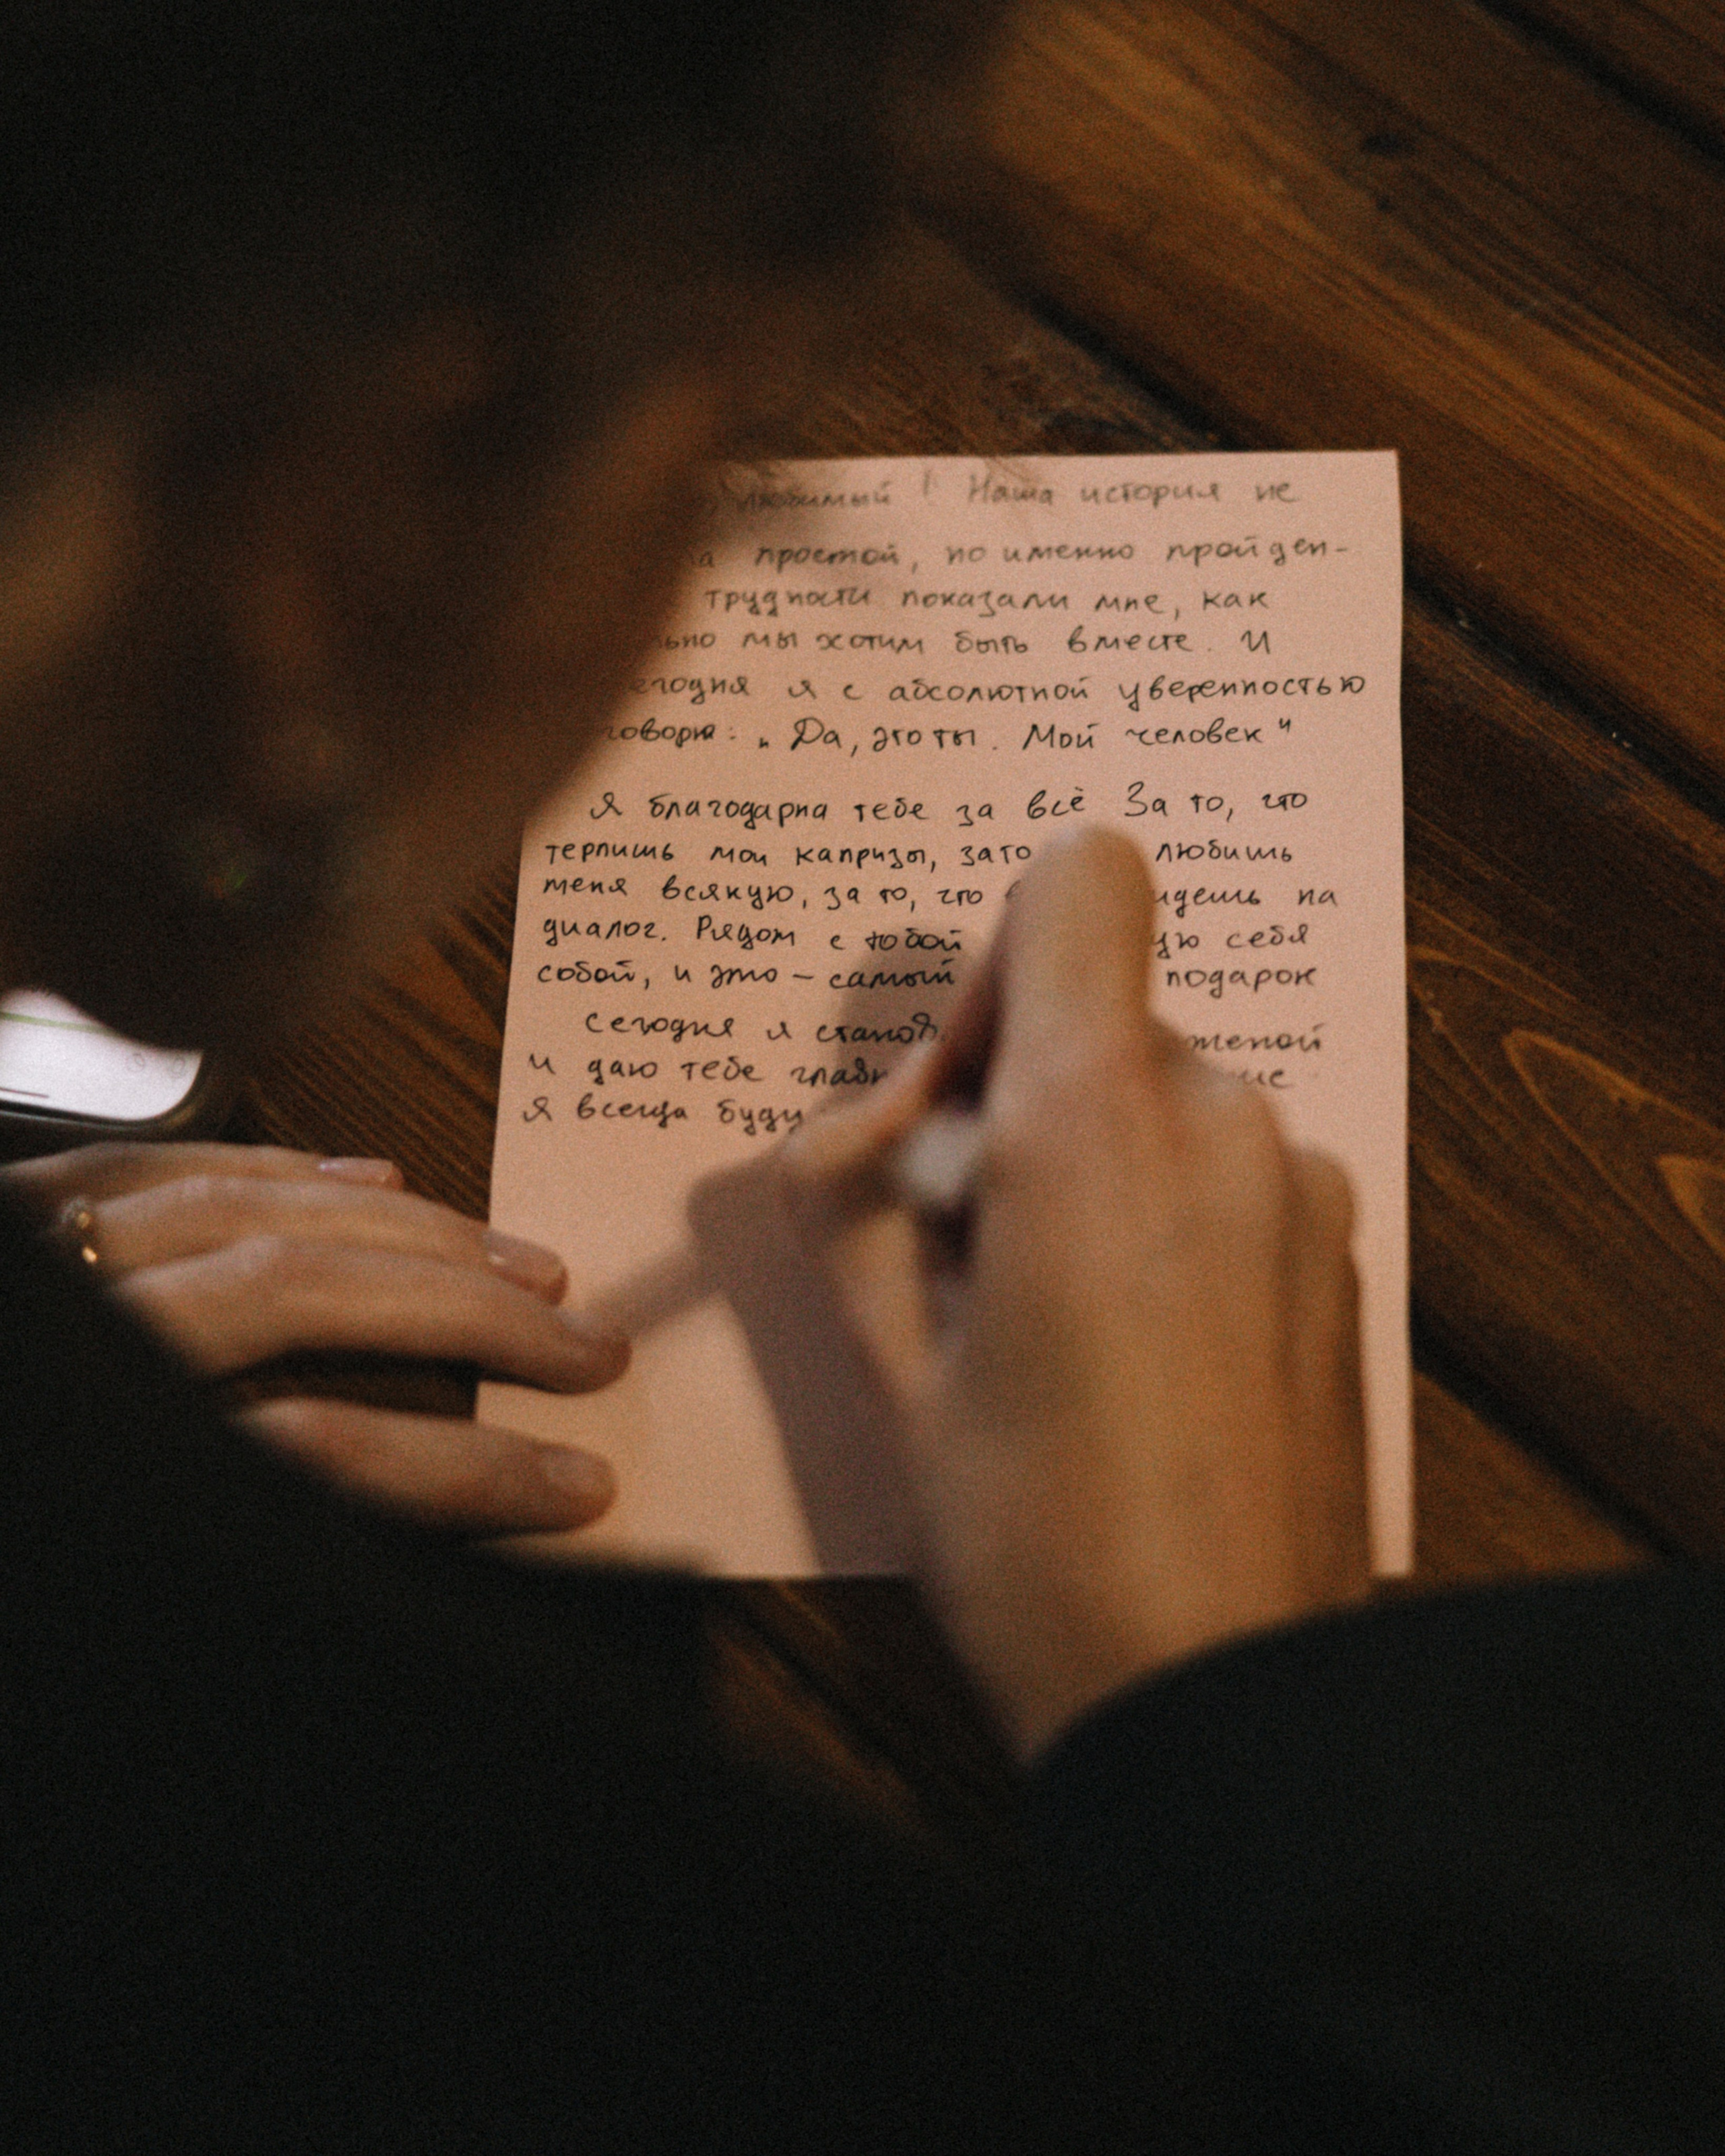 любимый! Наша история не
простой, но именно пройден-
трудности показали мне, как
мы хотим быть вместе. И
я с абсолютной уверенностью
говорю: „Да, это ты. Мой человек"
Я благодарна тебе за всё За то, что
терпишь мои капризы, за то любишь
меня всякую, за то, что идешь на
диалог. Рядом с тобой себя
собой, и это – самый подарок
Сегодня я женой
и даю тебе
Я всегда буду